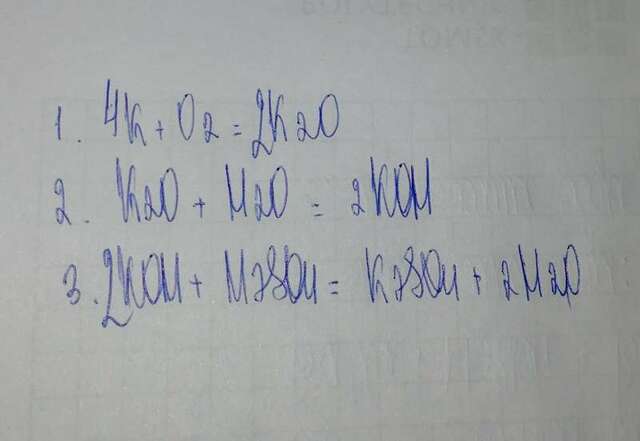 1. 4K + O2 = 2K2O
2. K2O + H2O = 2KOH
3. 2KOH + H2SO4 = K2SO4 + 2H2O